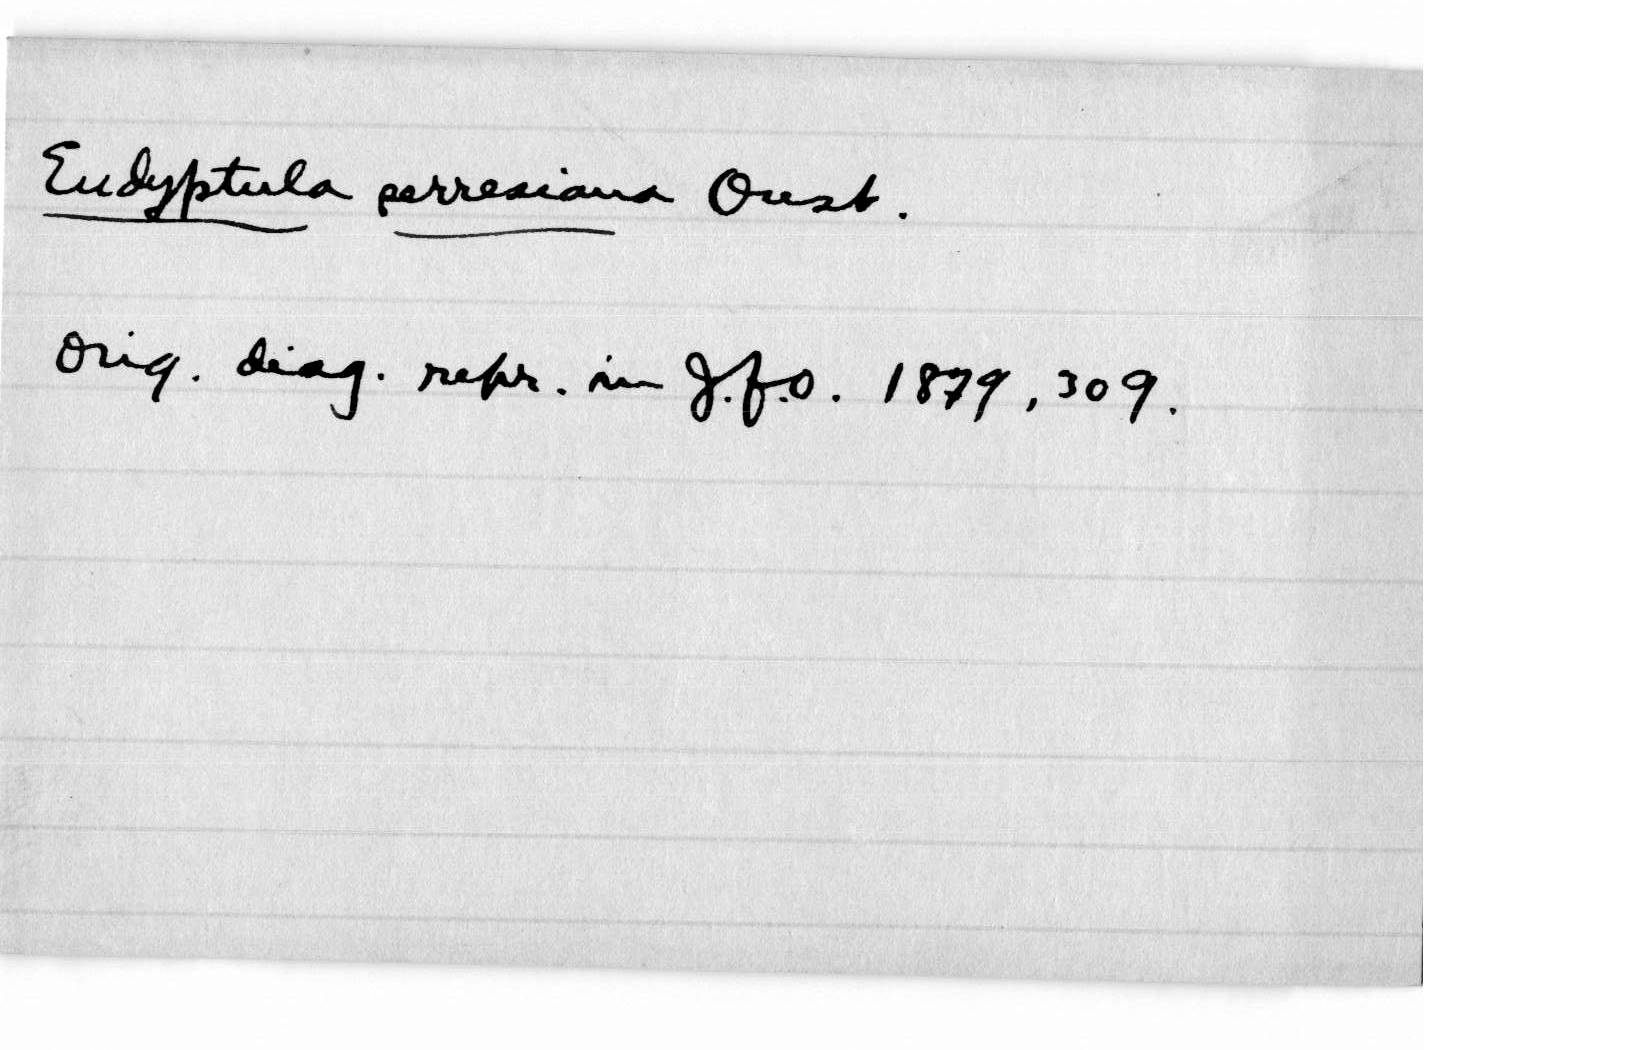 Eudyptula serresiana Oust.
Orig. diag. repr. in J.f.O. 1879, 309.